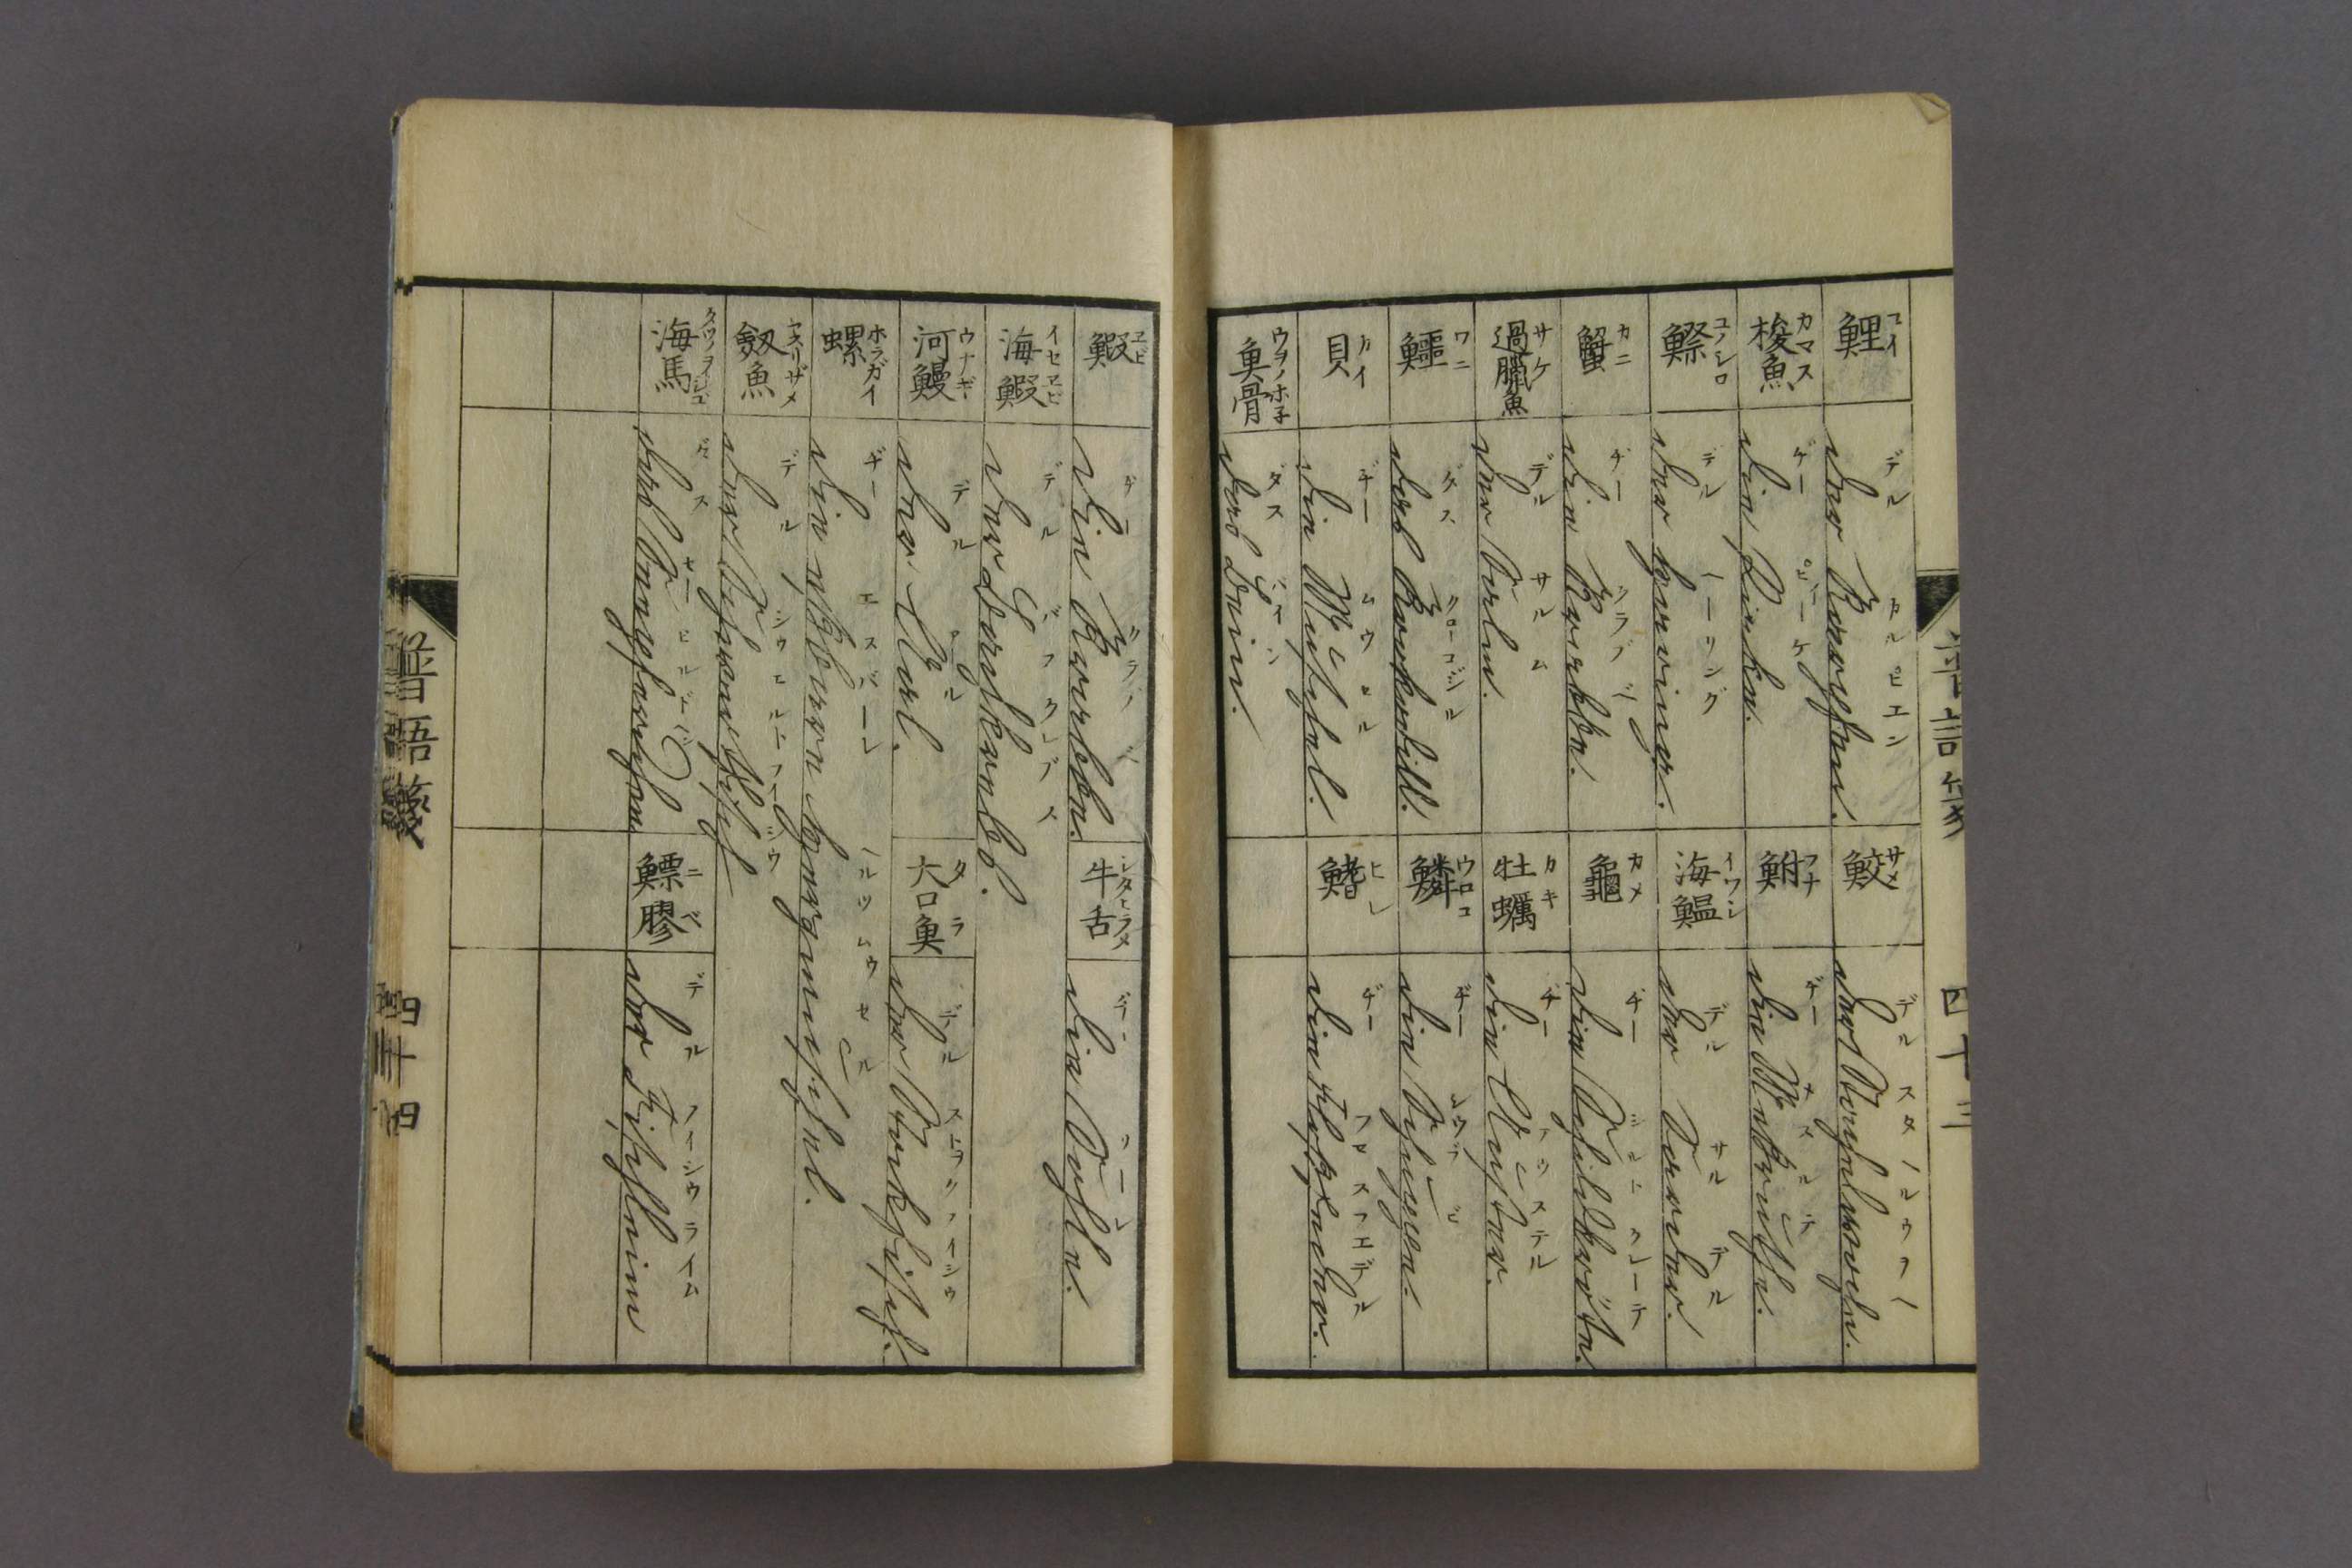 鯉 コイ
デル カルピエン
der Karpfen.
梭魚 カマス
der Hecht.
鰶 コノシロ
デル ヘーリング
der Häring.
蟹 カニ
ヂー クラブベ
die Krabbe.
過臘魚 サケ
デル サルム
der Salm.
鱷 ワニ
ダス クローコヂル
das Krokodill.
貝 カイ
ヂー ムウセル
die Muschel.
魚骨 ウヲノホ子
ダス バイン
das Bein.
鮫 サメ
デル
鮒 フナ
ヂー
海鰮 イワシ
デル サルデル
der Sardel.
龜 カメ
ヂー シルトクレーテ
die Schildkröte.
牡蠣 カキ
ヂー アウステル
die Auster.
鱗 ウロコ
ヂー シウプペ
die Schuppe.
鰭 ヒレ
ヂー フロスフエデル
die Floßfeder.
四十三
鰕 エビ
ヂー クラブベ
die Krabbe.
海鰕 イセエビ
デル
河鰻 ウナギ
デル アール
der Aal.
螺 ホラガイ
ヂー エスバーレ ヘルツムウセル
die eßbare Herzmuschel.
劔魚
デル シウエルトフイシウ
der Schwertfisch
海馬
ダス
das Seepferdchen
牛舌 シタヒラメ
ヂー ソーレ
die Sohle.
大口魚 タラ
デル ストクフイシウ
der Stockfisch.
鰾膠 ニベ
デル フイシウライム
der Fischleim
普語箋
四十四